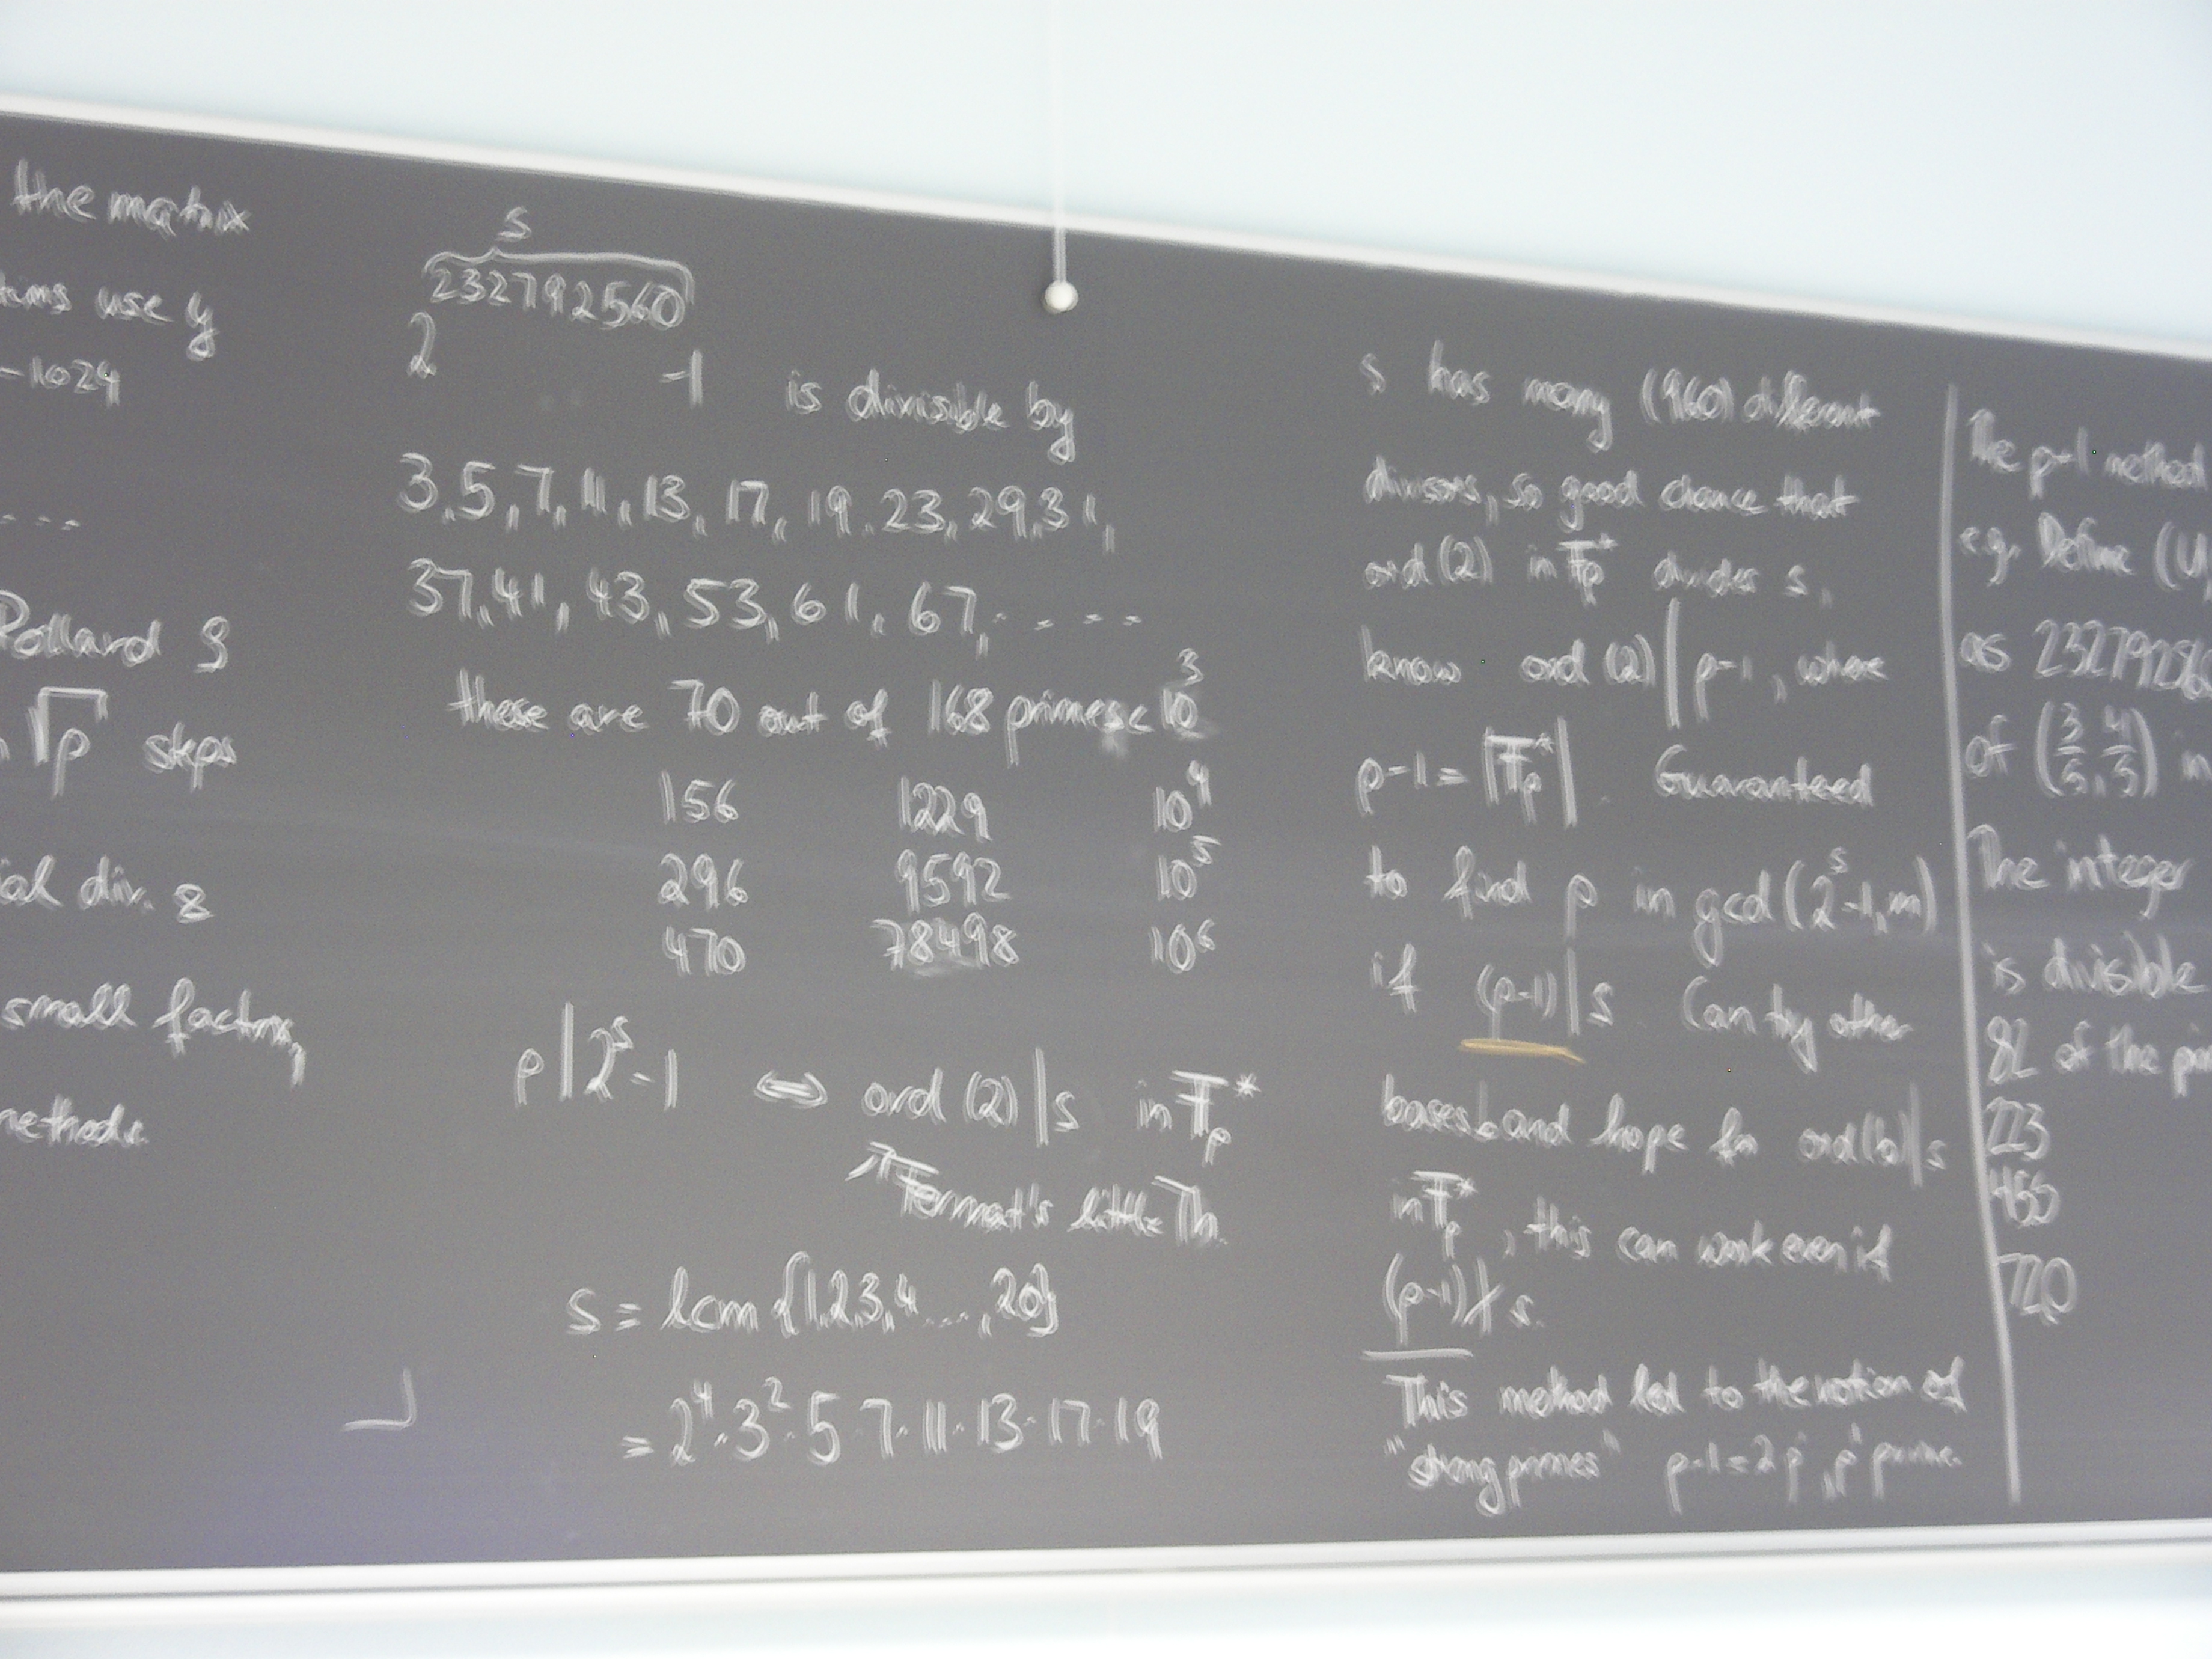 the matrix
use y
-1024
....
Pollard ρ
√p steps
div. 8
small factors,
methods.
s
2^232792560 -1 is divisible by
3,5,7,11,13,17,19,23,29,31,
37,41,43,53,61,67,.....
these are 70 out of 168 primes < 10^3
156 1229 10^4
296 9592 10^5
470 78498 10^6
p | 2^s-1 ⇔ ord (2) | s in F_p^*
↗ Fermat's little Th.
s = lcm {1,2,3,4...,20}
= 2^4·3^2·5·7·11·13·17·19
s has many (960) different
divisors, so good chance that
ord (2) in F_p^* divides s,
know ord (2) | p-1, where
p-1 = |F_p^*|. Guaranteed
to find p in gcd (2^s-1,m)
if (p-1) | s Can try other
bases b and hope for ord(b)|s
in F_p^*, this can work even if
(p-1) ∤ s.
This method led to the notion of
"strong primes" p-1=2p', p' prime.
The p-1 method
e.g. Define (U,
as 232792560
of (3/5, 4/5) in
The integer
is divisible
82 of the
223
455
720